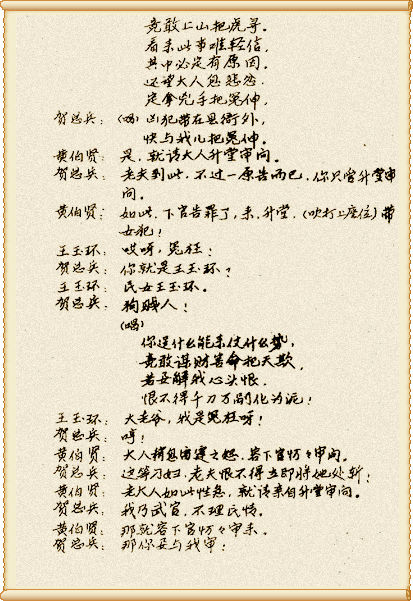 竟敢上山把虎寻。
看来此事难轻信，
其中必定有原因。
还望大人息悲忿，
定拿凶手把冤伸。
贺总兵：（唱）凶犯带在县衙外，
快与我儿把冤伸。
黄伯贤：是，就请大人升堂审问。
贺总兵：老夫到此，不过一原告而已，你只管升堂审
问。
黄伯贤：如此，下官告罪了，来，升堂。（吹打上座位）带
女犯！
王玉环：哎呀，冤枉！
贺总兵：你就是王玉环？
王玉环：民女王玉环。
贺总兵：狗贱人！
（唱）
你逞什么能来仗什么势，
竟敢谋财害命把天欺，
若要解我心头恨，
恨不得千刀万剐化为泥！
王玉环：大老爷，我是冤枉呀！
贺总兵：哼！
黄伯贤：大人暂息雷霆之怒，容下官慢々审问。
贺总兵：这等刁妇，老夫恨不得立即将他处斩！
黄伯贤：老大人如此性急，就请亲自升堂审问。
贺总兵：我乃武官，不理民情。
黄伯贤：那就容下官慢々审来。
贺总兵：那你要与我审！